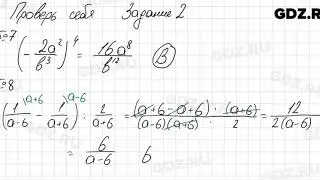 Проверь себя Задание 2 GDZ.R
№7 (-2a²/b³)⁴ = 16a⁸/b¹² В
№8
(1/(a-6) \a+6 - 1/(a+6) \a-6) : 1/(a+6) = (a+6-a+6)·(a+6)/((a-6)(a+6)·2 = 12/2(a-6)
= 6/(a-6) б